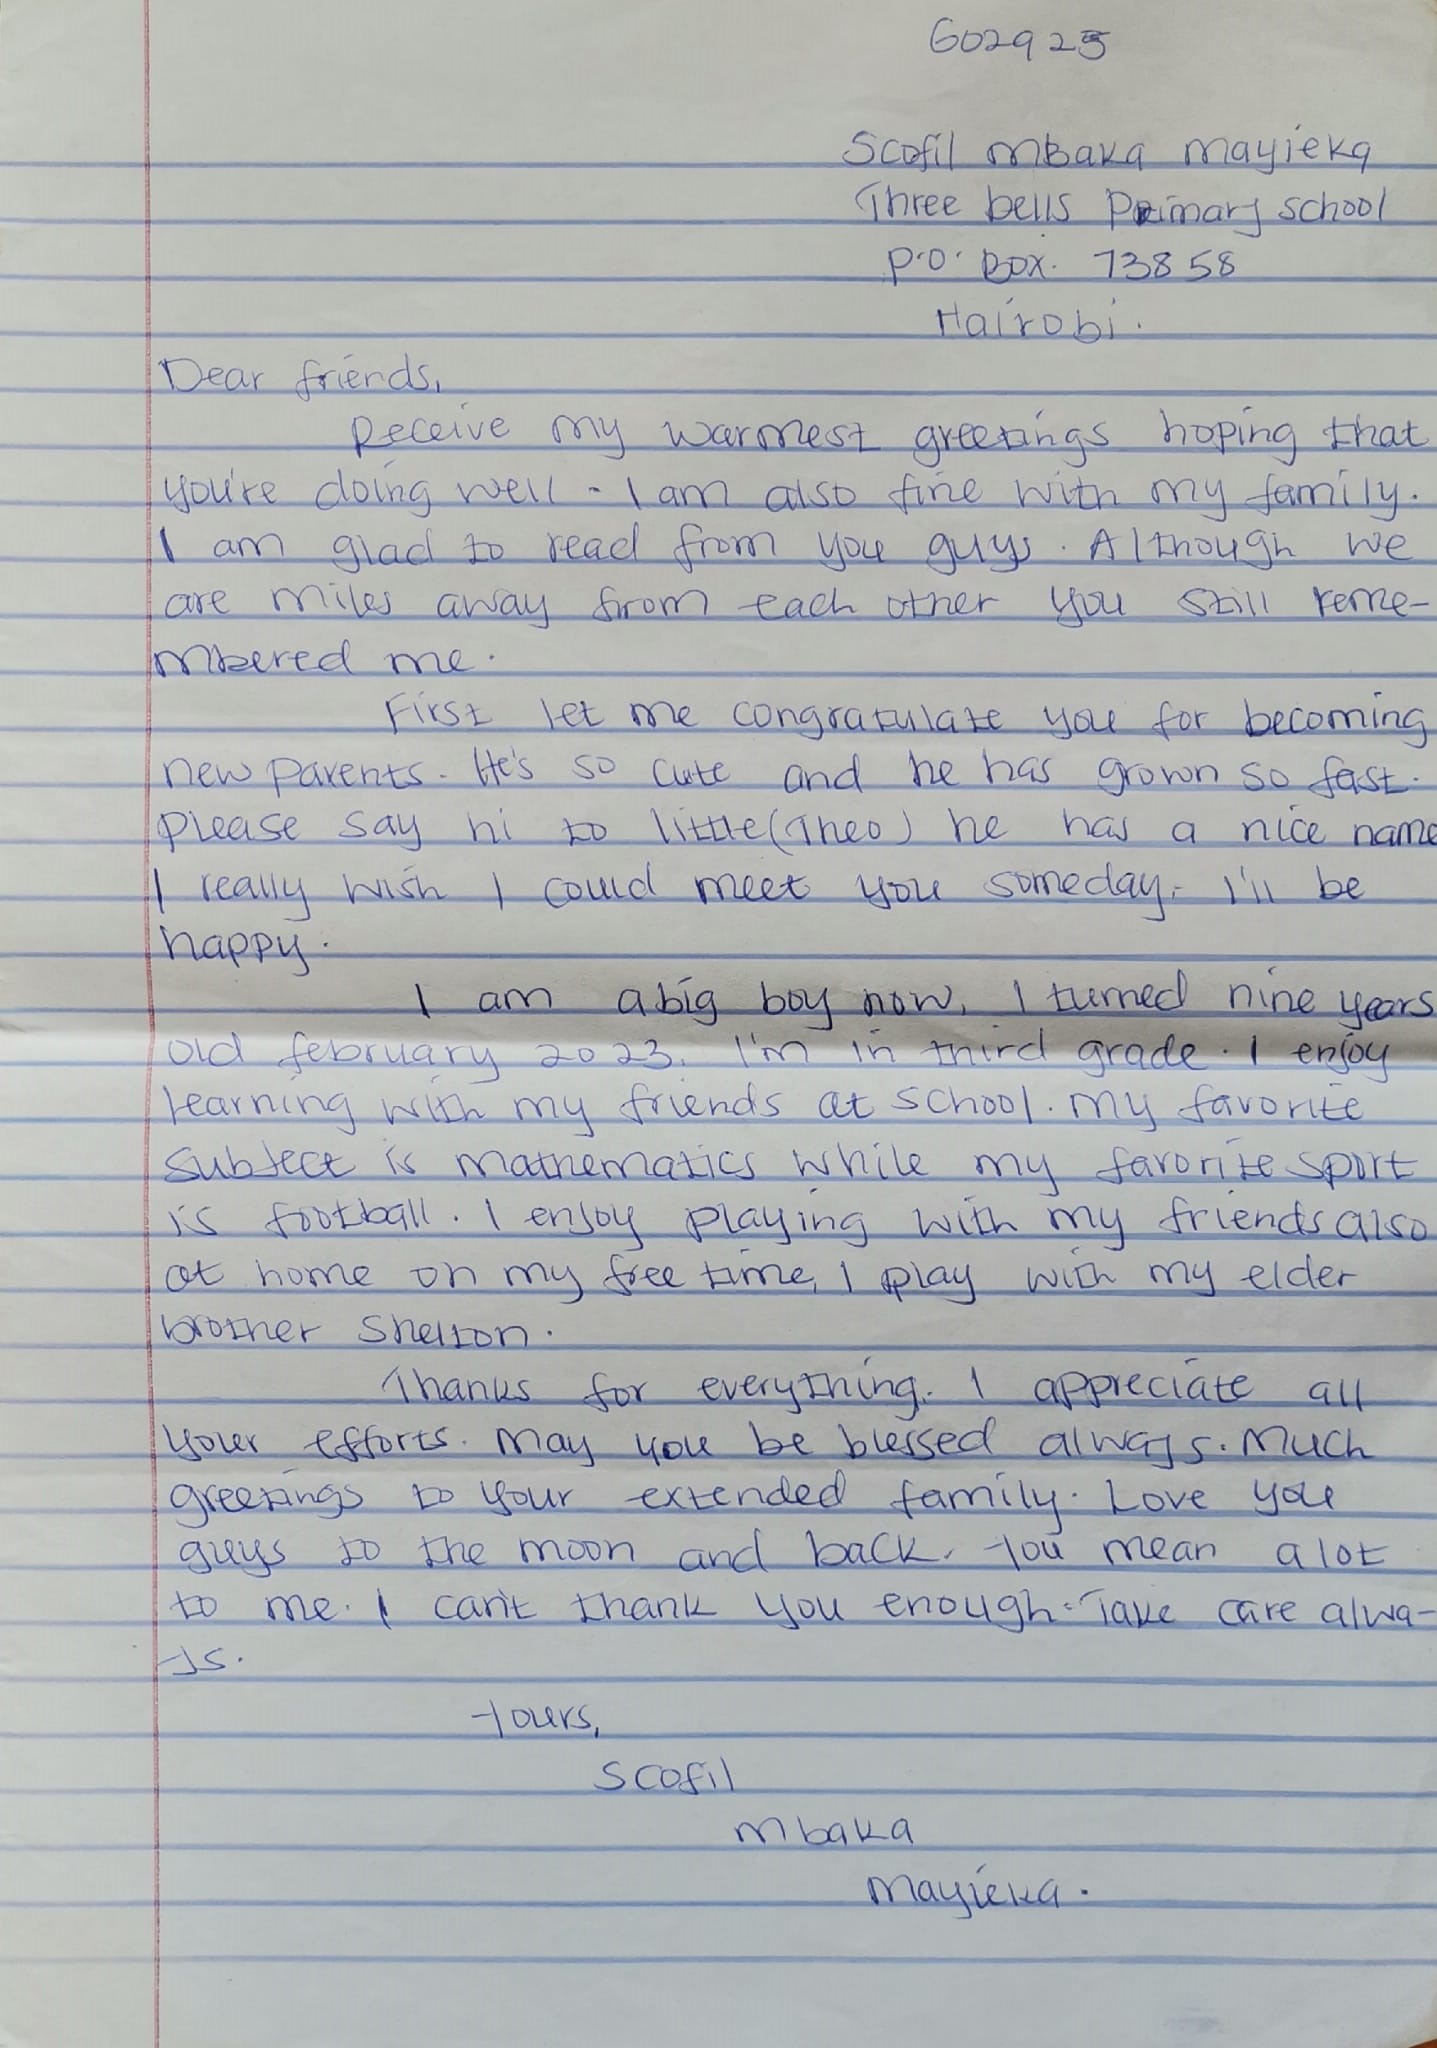 602925
Scofil mBaka mayieka
Three bells Primary school
P.O. Box. 73858
Nairobi.
Dear friends,
Receive my warmest greetings hoping that
you're doing well. I am also fine with my family.
I am glad to read from you guys. Although we
are miles away from each other you still reme-
mbered me.
First let me congratulate you for becoming
new parents. He's so cute and he has grown so fast.
please say hi to little (Theo) he has a nice name
I really wish I could meet you someday. I'll be
happy.
I am a big boy now, I turned nine years
old february 2023. I'm in third grade. I enjoy
learning with my friends at school. my favorite
subject is mathematics while my favorite sport
is football. I enjoy playing with my friends also
at home on my free time, I play with my elder
brother Shelton.
Thanks for everything. I appreciate all
your efforts. may you be blessed always. Much
greetings to your extended family. Love you
guys to the moon and back. You mean a lot
to me. I can't thank you enough. Take care alwa-
ys.
Yours,
Scofil
mbaka
mayieka.